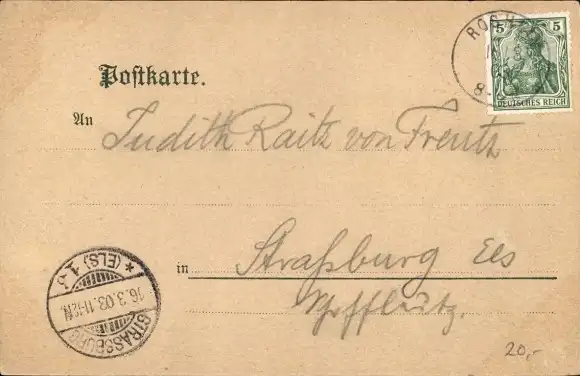 5 5
DEUTSCHES REICH
Postkarte.
An Judith Raitz von Frentz
in Straßburg Els
STRASSBURG * (ELS) 1
16.3.03.11-12N.
20,-